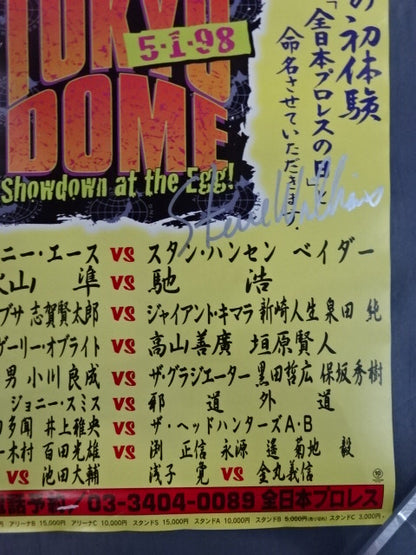 の初体験
「全日本プロレスの日」と
命名させていただきます。
TOKYO
5·1·98
DOME
Showdown at the Egg!
Steve Williams
ニー・エース VS スタン・ハンセン ベイダー
山 準 VS 馳 浩
ブサ 志賀賢太郎 VS ジャイアント・キマラ 新崎人生 泉田 純
ゲーリー・オブライト VS 高山善廣 垣原賢人
男 小川良成 VS ザ・グラジエーター 黒田哲広 保坂秀樹
ジョニー・スミス VS 邪道 外道
多聞 井上雅央 VS ザ・ヘッドハンターズA・B
ー木村 百田光雄 VS 渕 正信 永源 遥 菊地 毅
VS 池田大輔 浅子 覚 VS 金丸義信
電話予約/03-3404-0089 全日本プロレス
円 アリーナB 15,000円 アリーナC 10,000円 スタンドS 15,000円 スタンドA 10,000円 スタンドB 5,000円 スタンドC 3,000円